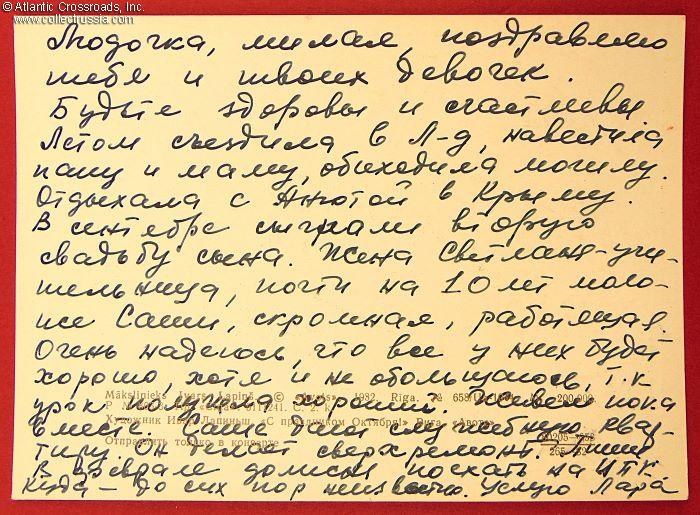 © Atlantic Crossroads, Inc.
www.collectrussia.com
Людочка, милая, поздравляю
тебя и твоих девочек.
Будьте здоровы и счастливы
Летом съездила в Л-д, навестила
папу и маму, обиходила могилу.
Отдыхала с Анютой в Крыму.
В сентябре сыграли вторую
свадьбу сына. Жена Светлана-учи-
тельница, почти на 10 лет моло-
же Саши, скромная, работящая.
Очень надеюсь, что все у них будет
хорошо, хотя и не обольщаюсь, т.к
Mākslinieks Ivars Lapiņš © 1982. Riga. №
урок получила хороший. пока
Художник Ивар Лапиньш. «С праздником Октября!» Рига.
вместе. дали служебную квар-
Отправлять только в конверте
тиру. Он делает сверхремонт.
В феврале должен поехать на
куда — до сих пор неизвестно. Целую Лара